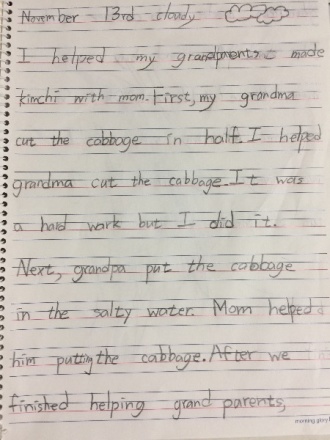 November 13rd cloudy
I helped my grandparents made
kimchi with mom. First, my grandma
cut the cabbage in half. I helped
grandma cut the cabbage. It was
a hard work but I did it.
Next, grandpa put the cabbage
in the salty water. Mom helped
him putting the cabbage. After we
finished helping grand parents,
morning glory